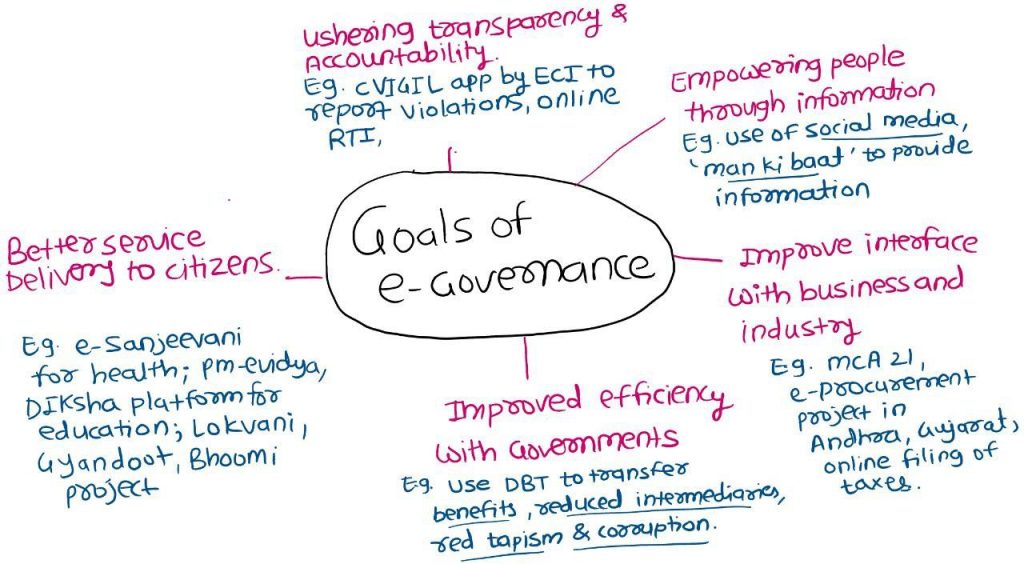 Goals of
e-Governance
ushering transparency &
Accountability.
Eg. cVIGIL app by ECI to
report violations, online
RTI,
Empowering people
through information
Eg. use of social media,
'man ki baat' to provide
information
Improve interface
with business and
industry
Eg. MCA 21,
e-procurement
project in
Andhra, Gujarat,
online filing of
taxes.
Improved efficiency
with Governments
Eg. use DBT to transfer
benefits, reduced intermediaries,
red tapism & corruption.
Better service
Delivery to citizens.
Eg. e-Sanjeevani
for health; pm-evidya,
DIKsha platform for
education; Lokvani,
Gyandoot, Bhoomi
project